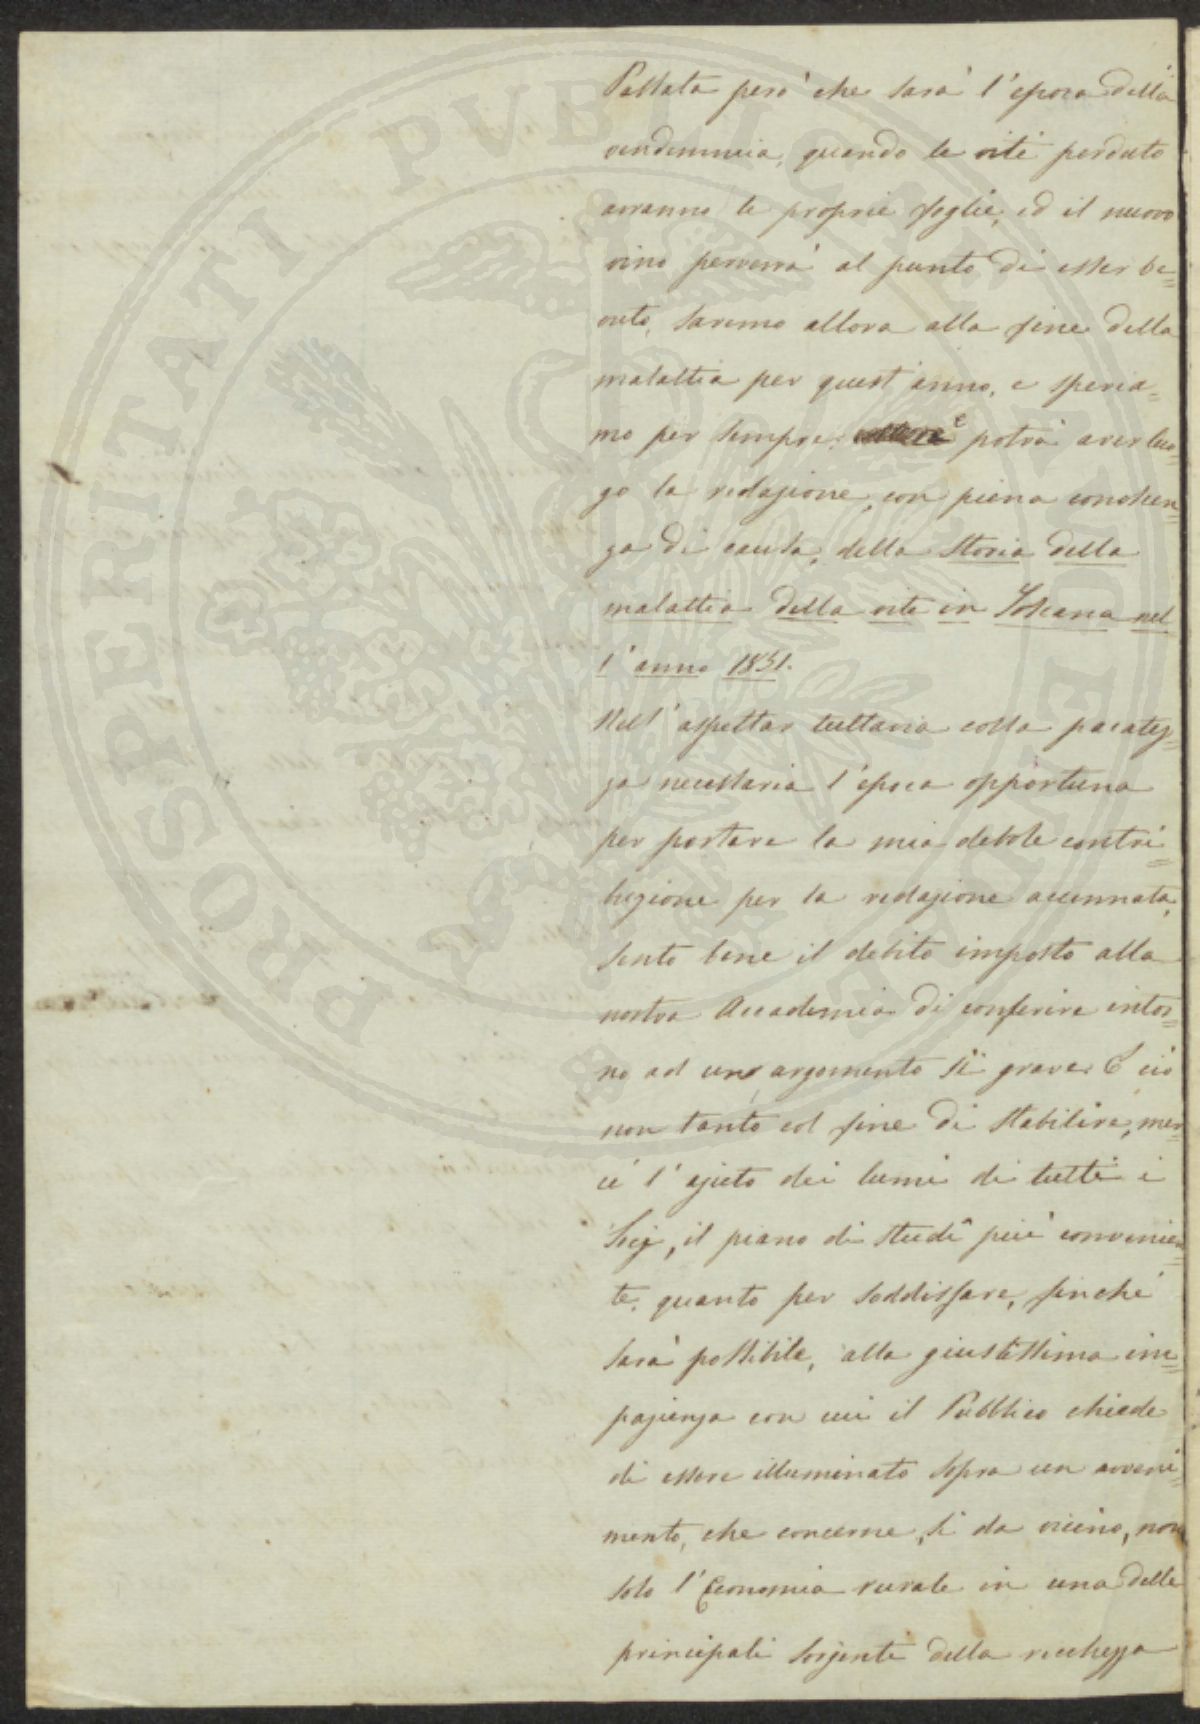 Passata però che sarà l'epoca della
vendemmia, quando le viti perduto
avranno le proprie foglie, ed il nuovo
vino perverrà al punto di esser be=
vuto, saremo allora alla fine della
malattia per quest'anno, e speria=
mo per sempre: e potrà aver luo=
go la redazione, con piena conoscen=
za di causa, della storia della
malattia della vite in Toscana nel
l'anno 1851.
Nell'aspettar tuttavia colla pacatez=
za necessaria l'epoca opportuna
per portare la mia debole contri=
buzione per la redazione accennata,
sento bene il debito imposto alla
nostra Accademia di conferire intor=
no ad un argomento sì grave. E ciò
non tanto col fine di stabilire, mer=
cè l'ajuto dei lumi di tutti i
Socj, il piano di studî più convenien=
te, quanto per soddisfare, finchè
sarà possibile, alla giustissima im=
pazienza con cui il Pubblico chiede
di essere illuminato sopra un avveni=
mento, che concerne, sì da vicino, non
solo l'Economia rurale in una delle
principali sorgenti della ricchezza
PROSPERITATI PUBLICAE AUGENDAE